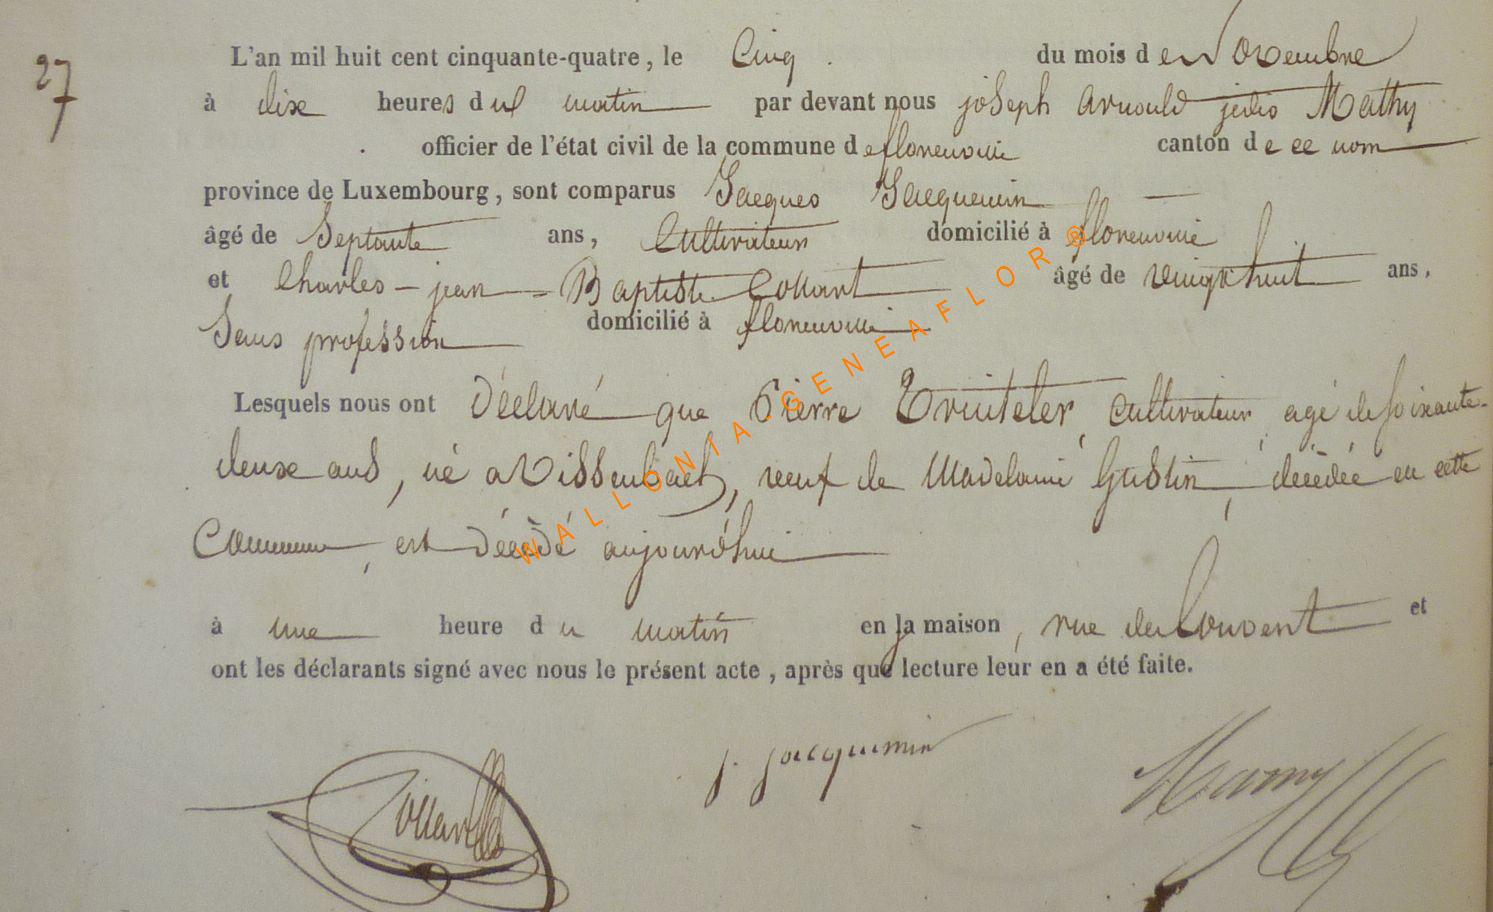 27
L'an mil huit cent cinquante-quatre, le Cinq du mois de Novembre
à dix heures du matin par devant nous joseph arnould jules Mathy
officier de l'état civil de la commune de florenville canton de ce nom
province de Luxembourg, sont comparus Jacques Jacquemin
âgé de Septante ans, Cultivateur domicilié à florenville
et Charles-jean-Baptiste Collart âgé de vingt huit ans,
Sans profession domicilié à florenville
Lesquels nous ont Déclaré que Pierre cultivateur, agé de soixante-
deux ans, né a Vissenbach, veuf de Madelaine Gustin, décédée en cette
Commune, est Décédé aujourd'hui
à une heure du matin en sa maison, rue du Couvent et
ont les déclarants signé avec nous le présent acte, après que lecture leur en a été faite.
Collart j. jacquemin
WALLONIA.GENEAFLOR®